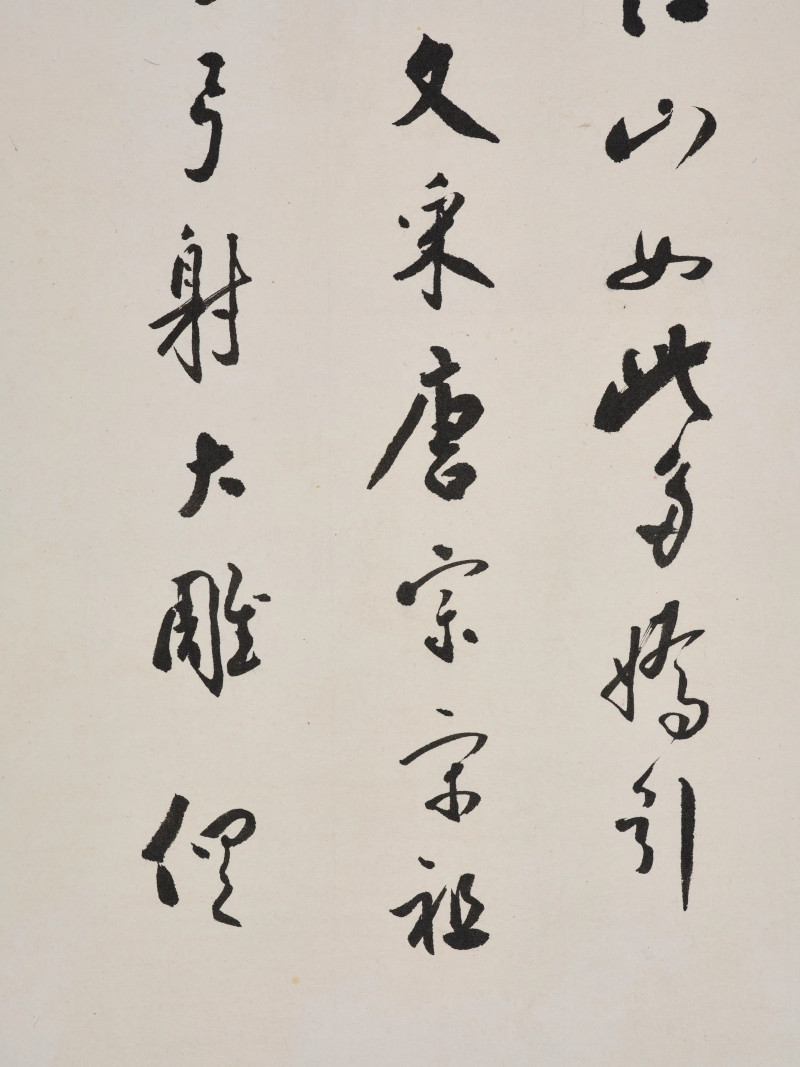 山如此多嬌引
文采唐宗宋祖
弓射大雕俱